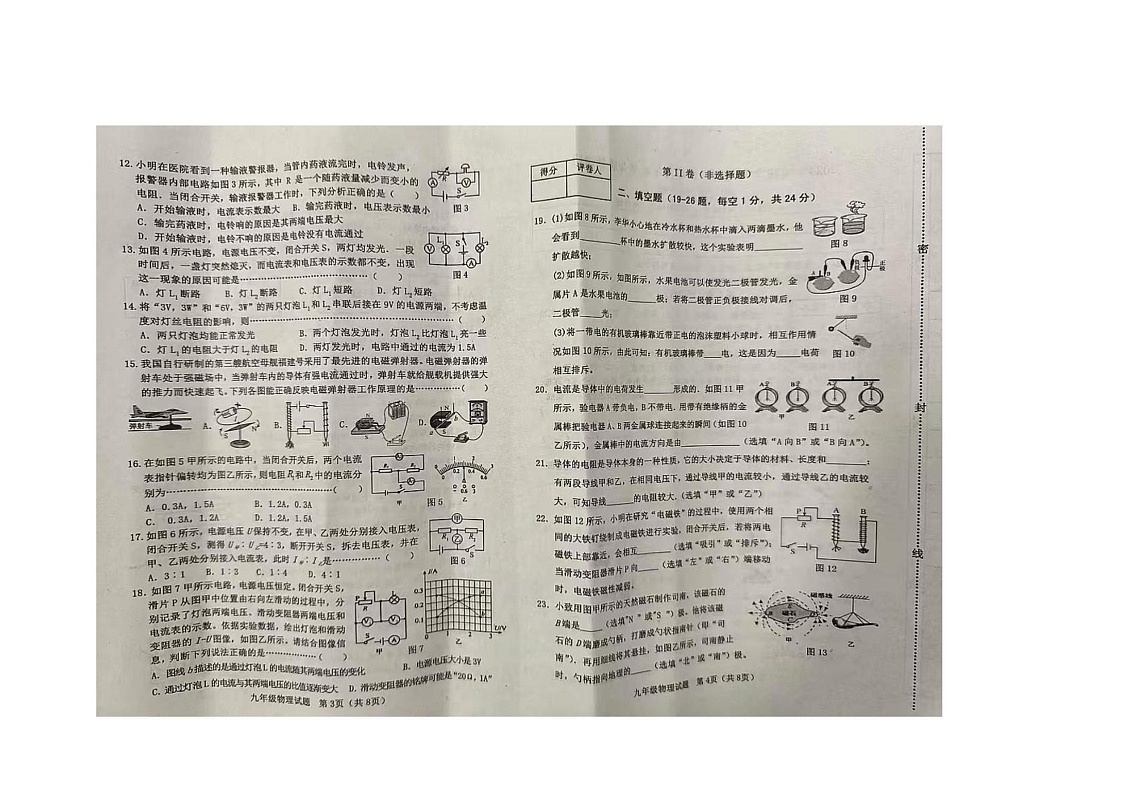 12. 小明在医院看到一种输液警报器，当管内药液流完时，电铃发声，
报警器内部电路如图3所示，其中 R 是一个随药液量减少而变小的
电阻．当闭合开关，输液报警器工作时，下列分析正确的是（ ）
A．开始输液时，电流表示数最大 B．输完药液时，电压表示数最小
C．输完药液时，电铃响的原因是其两端电压最大
D．开始输液时，电铃不响的原因是电铃没有电流通过
图3
13. 如图4所示电路，电源电压不变，闭合开关S，两灯均发光．一段
时间后，一盏灯突然熄灭，而电流表和电压表的示数都不变，出现
这一现象的原因可能是（ ）
A．灯L1断路 B．灯L2断路 C．灯L1短路 D．灯L2短路
图4
14. 将“3V，3W”和“6V，3W”的两只灯泡L1和L2串联后接在9V的电源两端，不考虑温
度对灯丝电阻的影响，则（ ）
A．两只灯泡均能正常发光 B．两个灯泡发光时，灯泡L2比灯泡L1亮一些
C．灯L1的电阻大于灯L2的电阻 D．两灯发光时，电路中通过的电流为1.5A
15. 我国自行研制的第三艘航空母舰福建号采用了最先进的电磁弹射器．电磁弹射器的弹
射车处于强磁场中，当弹射车内的导体有强电流通过时，弹射车就给舰载机提供强大
的推力而快速起飞。下列各图能正确反映电磁弹射器工作原理的是（ ）
弹射车 A. B. C. D.
16. 在如图5甲所示的电路中，当闭合开关后，两个电流
表指针偏转均为图乙所示，则电阻R1和R2中的电流分
别为（ ）
A. 0.3A，1.5A B. 1.2A，0.3A
C. 0.3A，1.2A D. 1.2A，1.5A
甲 图5 乙
17. 如图6所示，电源电压U保持不变，在甲、乙两处分别接入电压表，
闭合开关S，测得U甲：U乙=4：3，断开开关S，拆去电压表，并在
甲、乙两处分别接入电流表，此时I甲：I乙是（ ）
A. 3：1 B. 1：3 C. 1：4 D. 4：1
图6
18. 如图7甲所示电路，电源电压恒定。闭合开关S，
滑片P从图甲中位置由右向左滑动的过程中，分
别记录了灯泡两端电压、滑动变阻器两端电压和
电流表的示数。依据实验数据，绘出灯泡和滑动
变阻器的I-U图像，如图乙所示，请结合图像信
息，判断下列说法正确的是（ ）
甲 图7 乙
A．图线b描述的是通过灯泡L的电流随其两端电压的变化 B．电源电压大小是3V
C．通过灯泡L的电流与其两端电压的比值逐渐变大 D．滑动变阻器的铭牌可能是“20Ω，1A”
九年级物理试题 第3页（共8页）
得分 评卷人
第II卷（非选择题）
二、填空题（19-26题，每空1分，共24分）
19. (1)如图8所示，李华小心地在冷水杯和热水杯中滴入两滴墨水，他
会看到____杯中的墨水扩散较快，这个实验表明____
扩散越快；
图8
(2)如图9所示，如图所示，水果电池可以使发光二极管发光，金
属片A是水果电池的____极；若将二极管正负极接线对调后，
二极管____光；
图9
(3)将一带电的有机玻璃棒靠近带正电的泡沫塑料小球时，相互作用情
况如图10所示，由此可知：有机玻璃棒带____电，这是因为____电荷
相互排斥。
图10
20. 电流是导体中的电荷发生____形成的．如图11甲
所示，验电器A带负电，B不带电．用带有绝缘柄的金
属棒把验电器A、B两金属球连接起来的瞬间（如图10
乙所示），金属棒中的电流方向是由____（选填“A向B”或“B向A”）。
甲 图11 乙
21. 导体的电阻是导体本身的一种性质，它的大小决定于导体的材料、长度和____；
有两段导线甲和乙，在相同电压下，通过导线甲的电流较小，通过导线乙的电流较
大，可知导线____的电阻较大．（选填“甲”或“乙”）
22. 如图12所示，小明在研究“电磁铁”的过程中，使用两个相
同的大铁钉绕制成电磁铁进行实验，闭合开关后，若将两电
磁铁上部靠近，会相互____（选填“吸引”或“排斥”）；
当滑动变阻器滑片P向____（选填“左”或“右”）端移动
时，电磁铁磁性减弱。
图12
23. 小致用图甲所示的天然磁石制作司南，该磁石的
B端是____（选填"N "或"S "）极、他将该磁
石的D端磨成勺柄，打磨成勺状指南针（即“司
南”），再用细线将其悬挂，如图乙所示，司南静止
时，勺柄指向地理的____（选填“北”或“南”）极。
磁感线 磁石 甲 乙
图13
九年级物理试题 第4页（共8页）
密
封
线